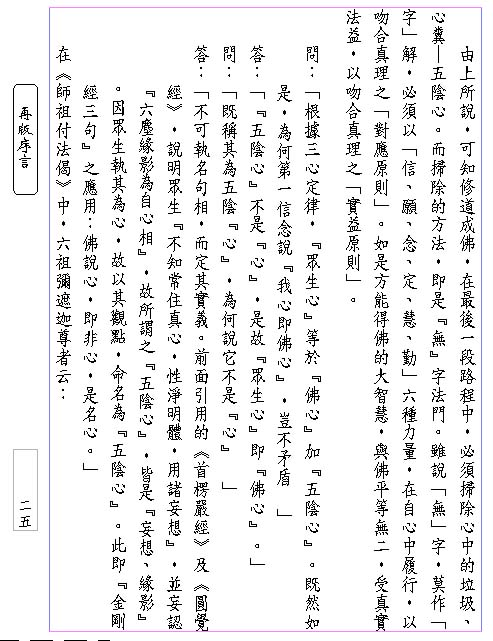 由上所說，可知修道成佛，在最後一段路程中，必須掃除心中的垃圾、
心糞—五陰心。而掃除的方法，即是『無』字法門。雖說「無」字，莫作「
字」解，必須以「信、願、念、定、慧、勤」六種力量，在自心中履行，以
吻合真理之「對應原則」。如是方能得佛的大智慧，與佛平等無二，受真實
法益，以吻合真理之「實益原則」。
問：「根據三心定律，『眾生心』等於『佛心』加『五陰心』。既然如
是，為何第一信念說『我心即佛心』，豈不矛盾 」
答：「『五陰心』不是『心』，是故『眾生心』即『佛心』。」
問：「既稱其為五陰『心』，為何說它不是『心』 」
答：「不可執名句相，而定其實義。前面引用的《首楞嚴經》及《圓覺
經》，說明眾生『不知常住真心，性淨明體，用諸妄想』，並妄認
『六塵緣影為自心相』，故所謂之『五陰心』，皆是『妄想、緣影』
。因眾生執其為心，故以其觀點，命名為『五陰心』。此即『金剛
經三句』之應用：佛說心，即非心，是名心。」
在《師祖付法偈》中，六祖彌遮迦尊者云：
再版序言
二五